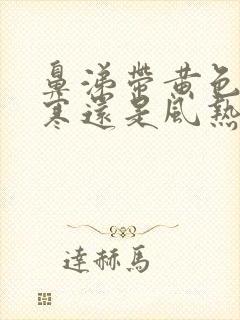 鼻涕帶黃色
寒還是風熱
達赫馬